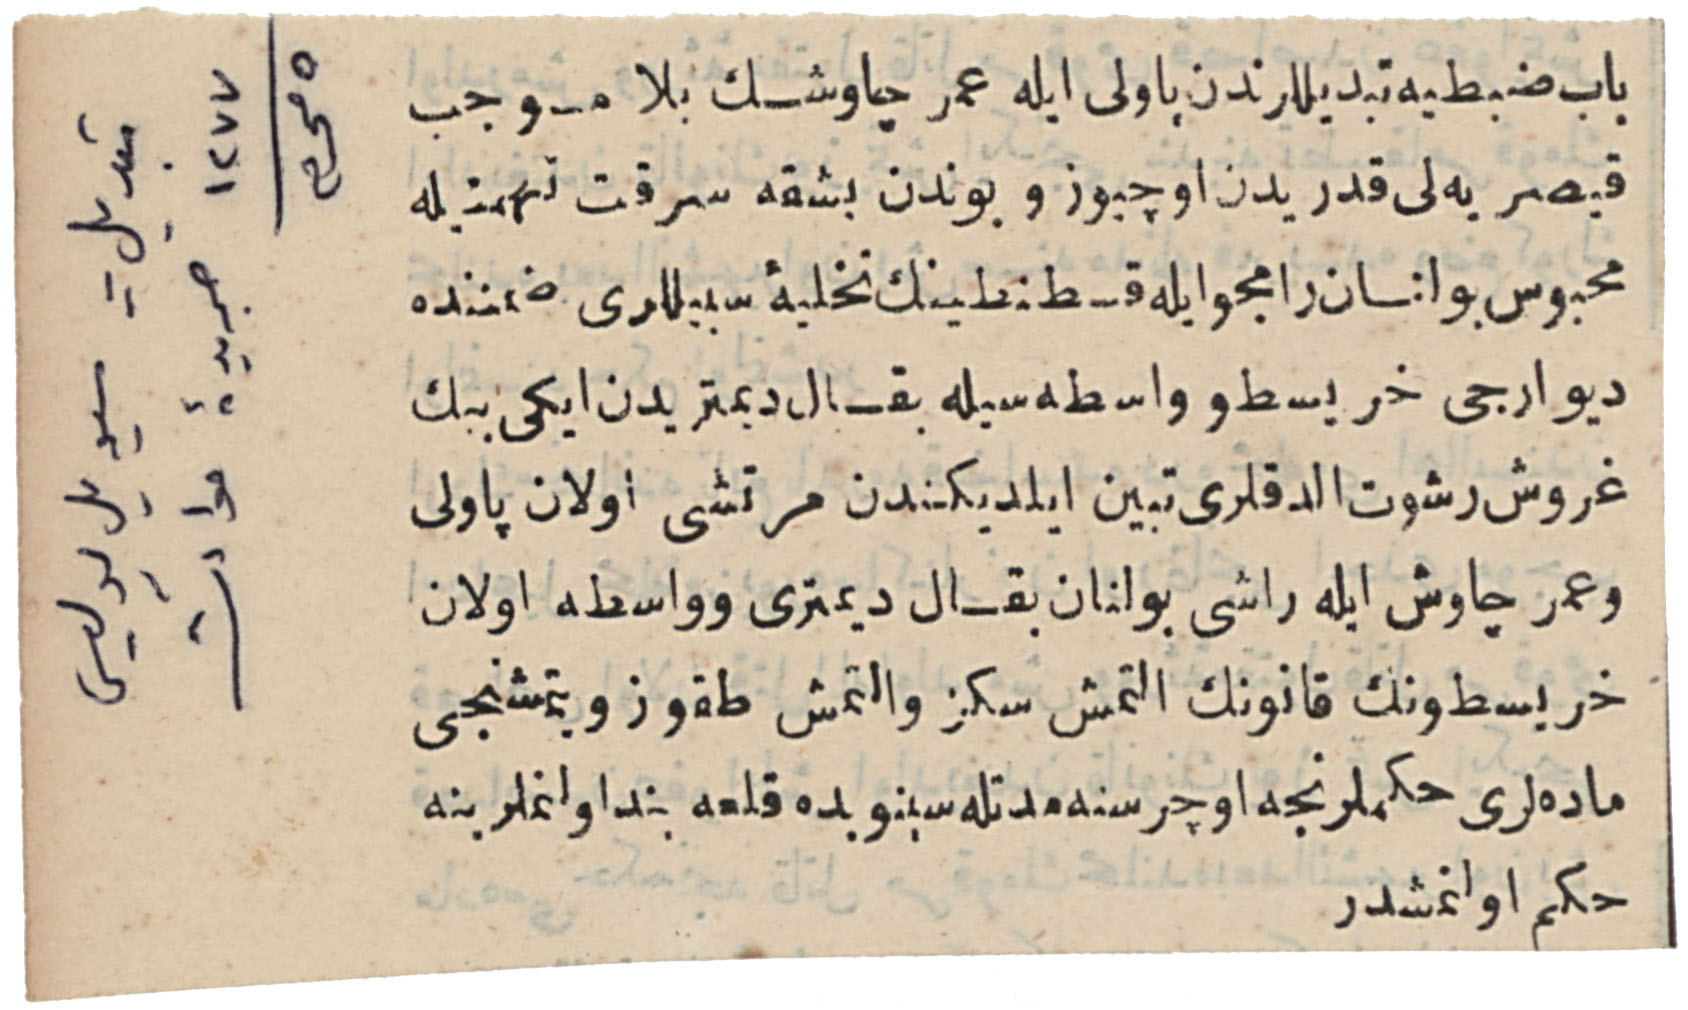 باب ضبطیه تبدیللرندن پاولی ایله عمر چاوشـك بلا مـوجب
قیصریه‌لی قدریدن اوچیوز و بوندن بشقه سرقت تهمتیله
محبوس یوانسان رامجو ایله قسطنطینك تخلیهٔ سبیللری ضمننده
دیوارجی خریسطو واسطه سیله بقـال دیمتریدن ایکی بیك
غروش رشوت الدقلری تبین ایلدیکندن مرتشی اولان پاولی
و عمر چاوش ایله راشی بولنان بقـال دیمتری و واسطه اولان
خریسطونك قانونك التمش سکز والتمش طقوز و یتمشنجی
ماده‌لری حکملرنجه اوچر سنه مدتله سینوبده قلعه بند اولنملرینه
حکم اولنمشدر
٥ محرم
١٢٧٧ جریدهٔ حوادث
تبدیل = سیویل پولیسی